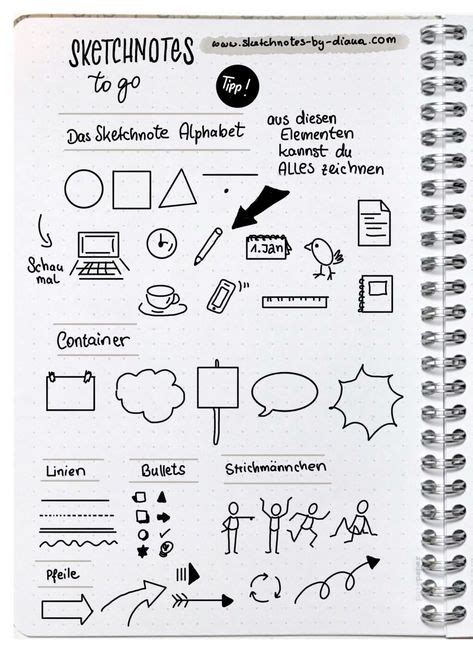 SKETCHNOTES
to go
www.sketchnotes-by-diana.com
Tipp!
Das Sketchnote Alphabet
aus diesen
Elementen
kannst du
ALLES zeichnen
Schau
mal
1. Jan
Container
Linien
Bullets
Strichmännchen
Pfeile